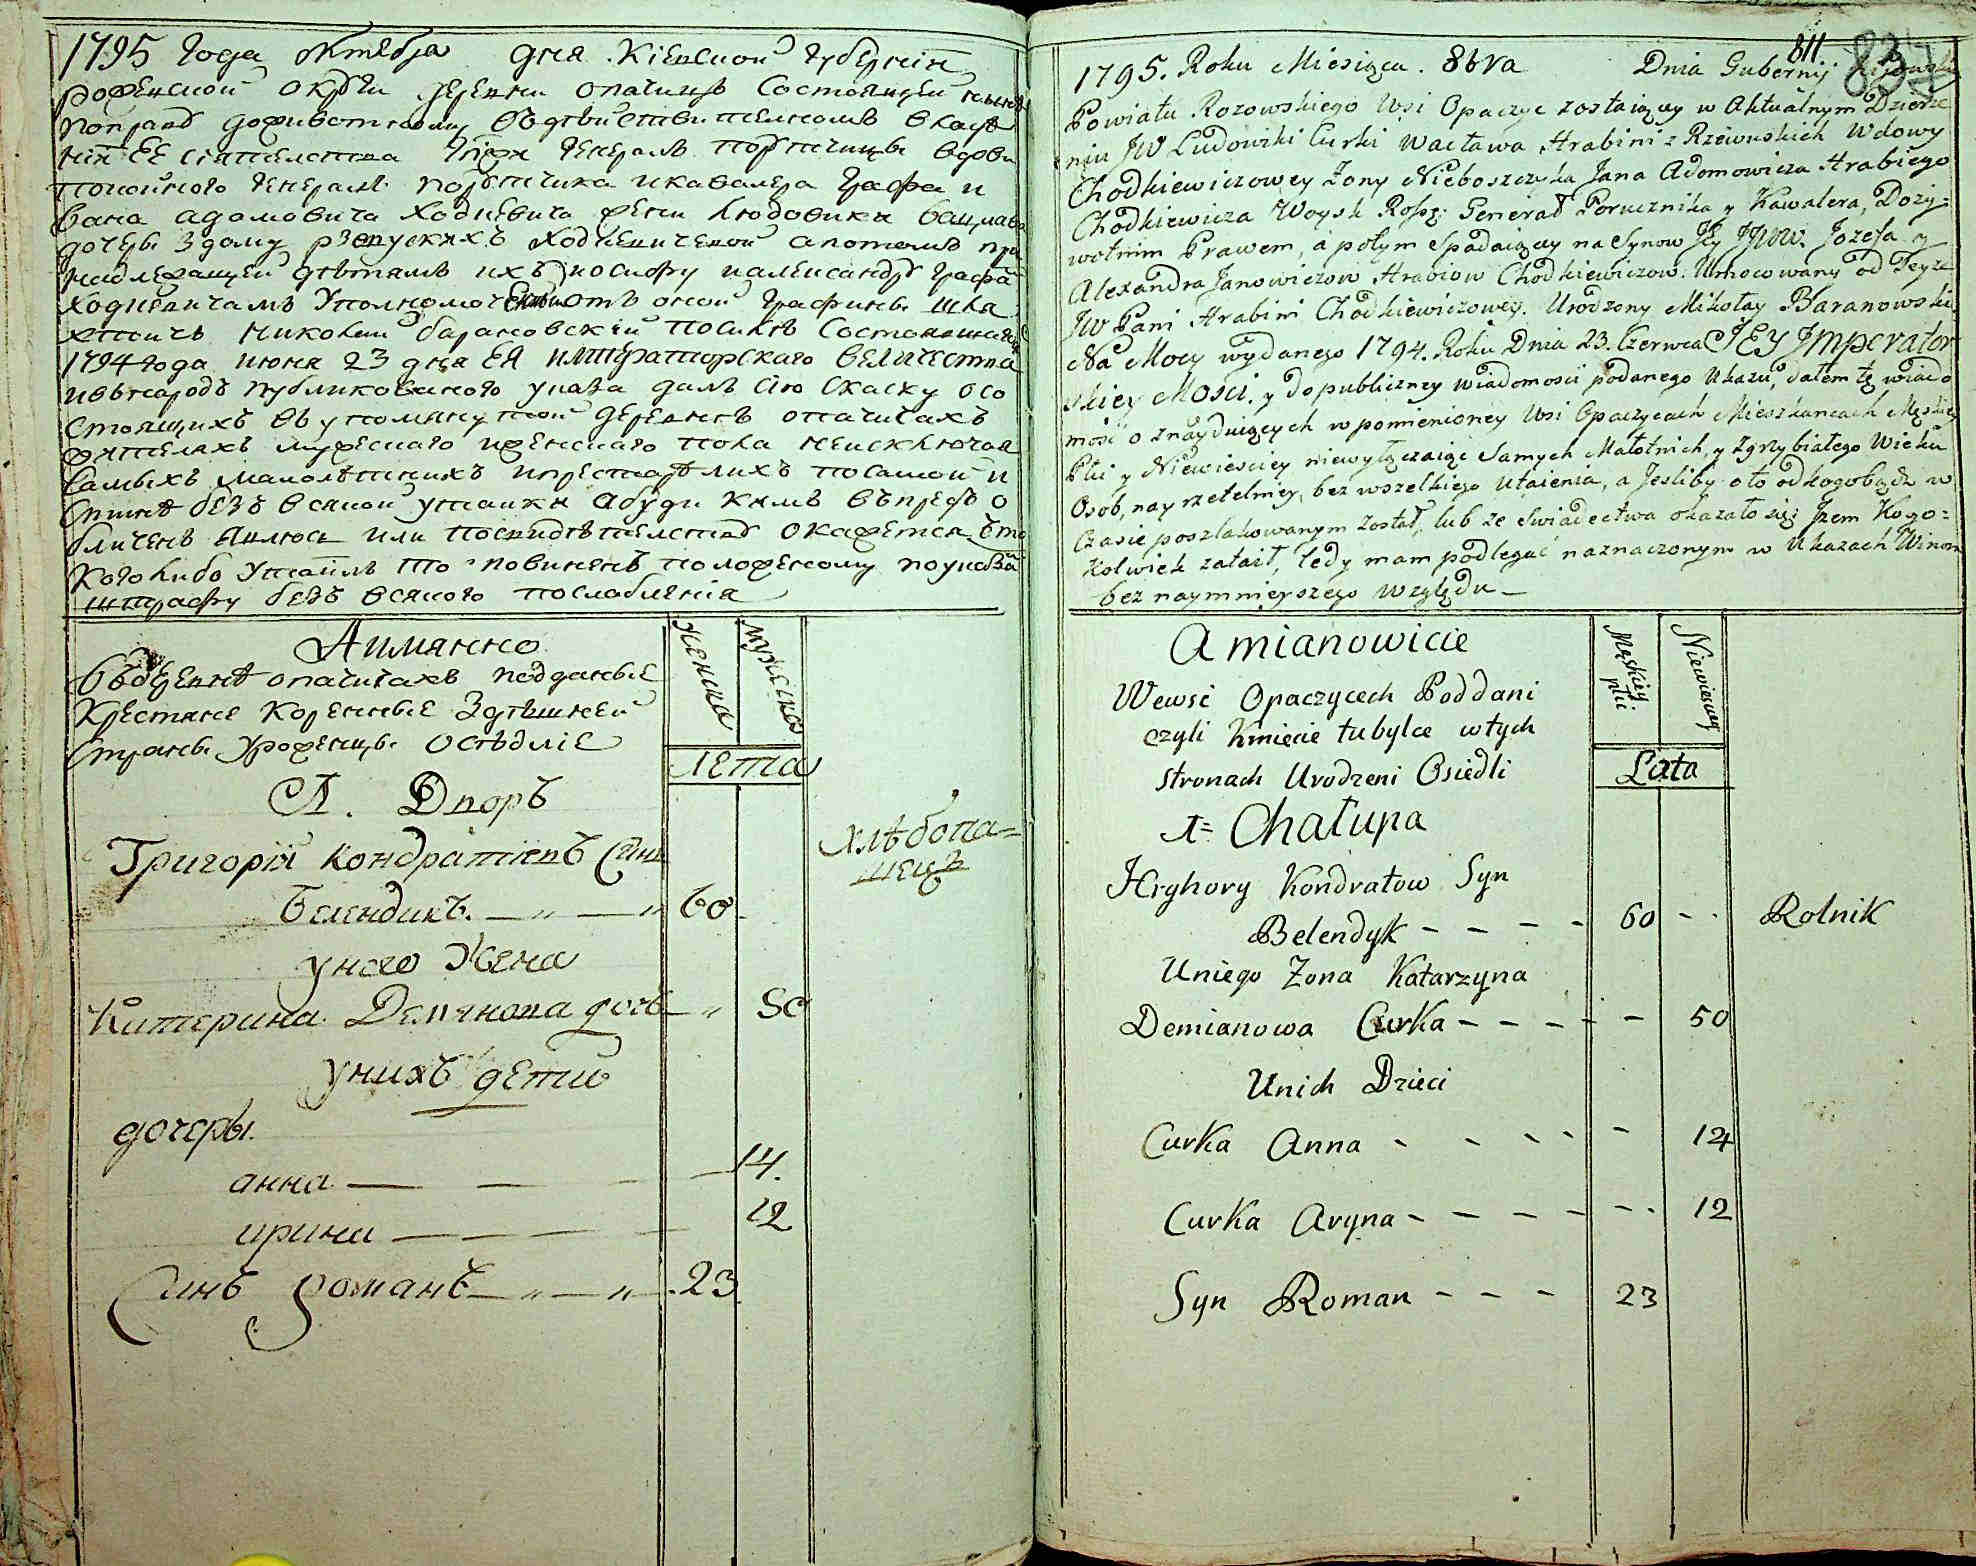 1795 Года Октября дня Кіевской Губерніи
роженской округи деревни опачицъ состоящей
поправѣ доживотному въдѣйствителномъ владе
ніи ЕЕ сіятелства Гпжи Генералъ порутчицы вдовы
покойного Генералъ порутчика икавалера Графа и
вана адамовича ходкевича жени людовики вацлава
дочеры здому рзевускихъ ходкевичевой апотомъ при
надлежащей дѣтямъ ихъ иосифу иалександру Графа
ходкевичамъ Уполномоченный отъ оной Графины шля
хтичъ николай барановскій посилѣ состоявшагося
1794 года июня 23 дня ЕЯ императорскаго величества
ивънародъ публикованого указа далъ сію скаску осо
стоящихъ въупомянутой деревнѣ опачичахъ
жителяхъ мужескаго иженскаго пола неисключая
самыхъ малолѣтнихъ ипрестарѣлихъ посамой и
стинѣ безъ всякой утайки абуди кимъ въпредь о
бличенъ явлюсь или посвидѣтелству окажется что
кого либо утаилъ то повиненъ положеному поуказа
штрафу безъ всякого послабленія
Аимянно
Въдеревнѣ опачичахъ подданые
Крестяне коренные Здѣшней
страны уроженцы осѣдліе
женска
мужеска
лета
А. Дворъ
Григорій кондратіевъ синъ
Белендикъ. — „ — „ 60
хлѣбопа=
шецъ
унего Жена
Катерина Демянова дочь — „ 50
унихъ дети
дочеры.
анна — — — — 14.
ирина — — — — 12
Синъ романъ — „ — „ — 23
811
83
1795. Roku Miesiąca. 8bra Dnia Gubernij Kijowskiey
Powiatu Rozowskiego Wsi Opaczyc zostaiącey w Aktualnym Dzierże
niu JW Ludowiki Curki Wacława Hrabini z Rzewuskich Wdowy
Chodkiewiczowey Zony Nieboszczyka Jana Adomowicza Hrabiego
Chodkiewicza Woysk Rossy: Generał Porucznika y Kawalera, Dozy=
wotnim Prawem, a potym Spadaiącey na Synow Jey JWW. Jozefa y
Alexandra Janowiczow Hrabiow Chodkiewiczow. Umocowany od Teyze
JW Pani Hrabini Chodkiewiczowey. Urodzony Mikołay Baranowski
Na Mocy wydanego 1794. Roku Dnia 23. Czerwca JEY Imperator
skiey Mości. y do publiczney wiadomosci podanego Ukazu, dałem tę wiado
mość o znayduiących w pomienioney Wsi Opaczycach Mieszkancach Męskiey
Płci y Niewiesciey niewyłączaiąc Samych Małotnich, y zgrzybiałego Wieku
Osob, nay rzetelniey, bez wszelkiego utaienia, a Jesliby oto odkogobądz w
Czasie poszlakowanym został, lub ze Swiadectwa okazało się: Jzem Kogo=
kolwiek zataił, tedy mam podlegać naznaczonym w Ukazach Winom
bez naymnieyszego względu —
Amianowicie
Wewsi Opaczycech Poddani
czyli Kmiecie tubylce wtych
stronach Urodzeni Osiedli
Męskiey płci
Niewiesciey
Lata
A= Chałupa
Hryhory Kondratow Syn
Belendyk - - - - 60 - - Rolnik
Uniego Zona Katarzyna
Demianowa Curka - - - - - 50
Unich Dzieci
Curka Anna - - - - - 14
Curka Aryna - - - - - - 12
Syn Roman - - - 23